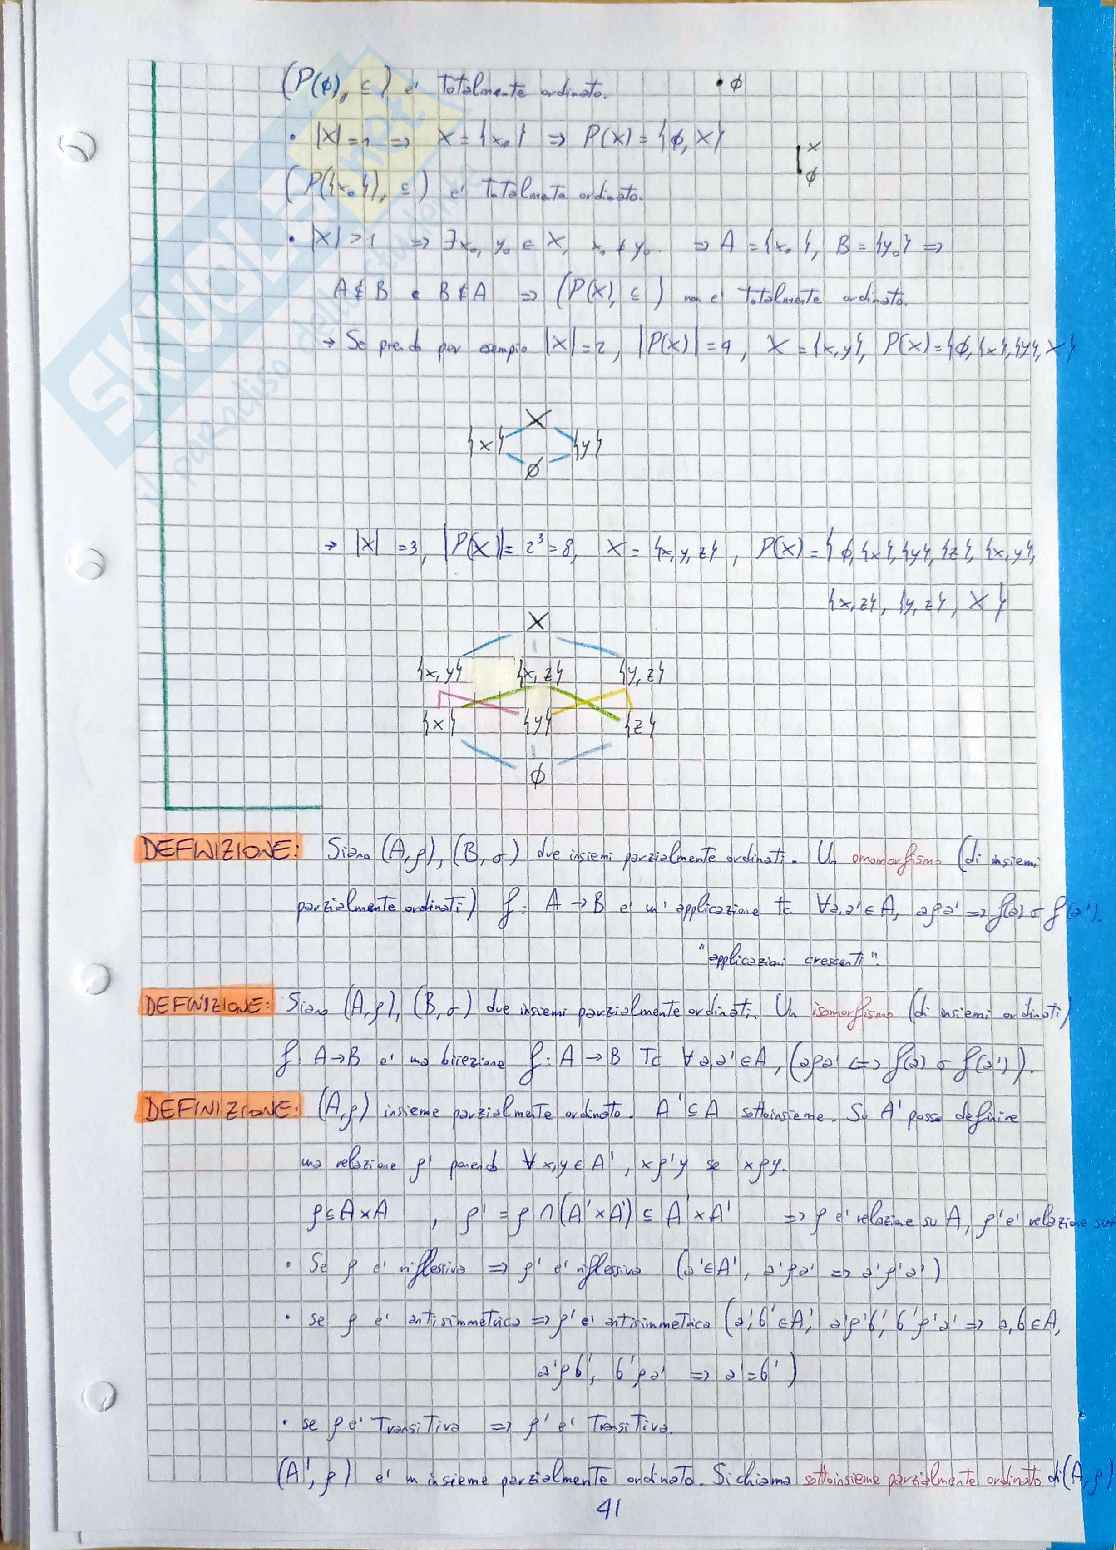 (P(ϕ), ⊆) e' totalmente ordinato.
• ϕ
• |X|=1 ⇒ X = {x₀} ⇒ P(X) = {ϕ, X}
X
ϕ
(P({x₀}), ⊆) e' totalmente ordinato.
• |X|>1 ⇒ ∃x₀, y₀ ∈ X, x₀ ≠ y₀ ⇒ A = {x₀}, B = {y₀} ⇒
A⊈B e B⊈A ⇒ (P(X), ⊆) non e' totalmente ordinato.
→ Se prendo per esempio |X|=2, |P(X)|=4, X = {x,y}, P(X)={ϕ,{x},{y},X}
X
{x} {y}
ϕ
→ |X|=3, |P(X)|=2³=8, X = {x,y,z}, P(X)={ϕ,{x},{y},{z},{x,y},
{x,z}, {y,z}, X}
X
{x,y} {x,z} {y,z}
{x} {y} {z}
ϕ
DEFINIZIONE: Siano (A,ρ), (B,σ) due insiemi parzialmente ordinati. Un omomorfismo (di insiemi
parzialmente ordinati) f: A→B e' un'applicazione tc ∀a,a'∈A, aρa' ⇒ f(a) σ f(a').
"applicazioni crescenti".
DEFINIZIONE: Siano (A,ρ), (B,σ) due insiemi parzialmente ordinati. Un isomorfismo (di insiemi ordinati)
f: A→B e' una biiezione f: A→B Tc ∀a,a'∈A, (aρa' ⇔ f(a) σ f(a')).
DEFINIZIONE: (A,ρ) insieme parzialmente ordinato. A'⊆A sottoinsieme. Su A' posso definire
una relazione ρ' ponendo ∀x,y∈A', xρ'y se xρy.
ρ⊆A×A , ρ' = ρ∩(A'×A') ⊆ A'×A' ⇒ ρ e' relazione su A, ρ' e' relazione su
• Se ρ e' riflessiva ⇒ ρ' e' riflessiva (a'∈A', a'ρa' ⇒ a'ρ'a')
• se ρ e' antisimmetrica ⇒ ρ' e' antisimmetrica (a',b'∈A', a'ρ'b', b'ρ'a' ⇒ a,b∈A,
a'ρb', b'ρa' ⇒ a'=b')
• se ρ e' Transitiva ⇒ ρ' e' Transitiva.
(A', ρ) e' un insieme parzialmente ordinato. Si chiama sottoinsieme parzialmente ordinato di (A,ρ)
41
SKUOLA.net
il paradiso dello studente